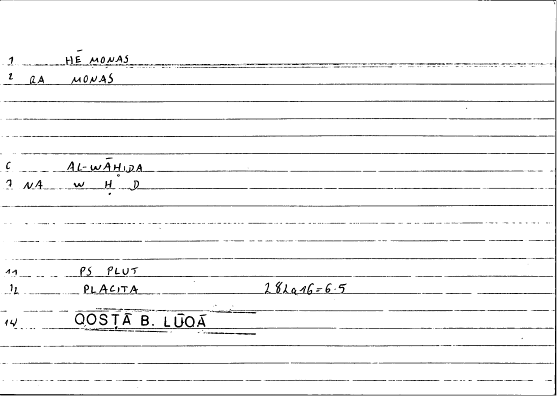 1 HĒ MONAS
2 QA MONAS
6 AL-WĀḤIDA
7 NA W Ḥ D
11 PS PLUT
12 PLACITA 282a16=6.5
14 QOSṬĀ B. LŪQĀ